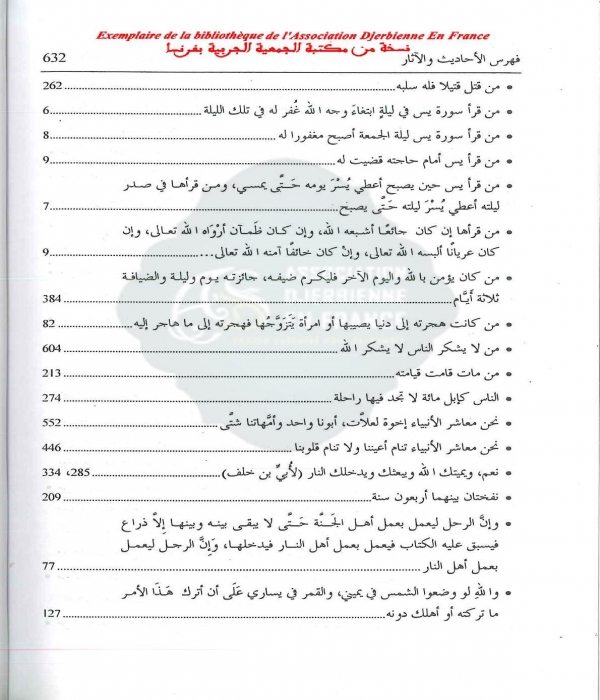 Exemplaire de la bibliothèque de l'Association Djerbienne En France
نسخة من مكتبة الجمعية الجربية بفرنسا
فهرس الأحاديث والآثار 632
• من قتل قتيلا فله سلبه 262
• من قرأ سورة يس في ليلةٍ ابتغاءَ وجه الله غُفر له في تلك الليلة 6
• من قرأ سورة يس ليلة الجمعة أصبح مغفورا له 8
• من قرأ يس أمام حاجته قضيت له 9
• من قرأ يس حين يصبح أعطي يُسْرَ يومه حَتَّى يمسي، ومن قرأها في صدر
ليلته أعطي يُسْرَ ليلته حَتَّى يصبح 7
• من قرأها إن كان جائعًا أشبعه الله، وإن كان ظَمآن أرْوَاه الله تعالى، وإن
كان عريانًا ألبسه الله تعالى، وإنْ كان خائفًا آمنه الله تعالى... 9
• من كان يؤمن بالله واليوم الآخر فليكرم ضيفه، جائزته يوم وليلة والضيافة
ثلاثة أيَّام 384
• من كانت هجرته إلى دنيا يصيبها أو امرأة يَتَزَوَّجُها فهجرته إلى ما هاجر إليه 82
• من لا يشكر الناس لا يشكر الله 604
• من مات قامت قيامته 213
• الناس كإبل مائة لا تجد فيها راحلة 274
• نحن معاشر الأنبياء إخوة لعلاَّت، أبونا واحد وأمَّهاتنا شتَّى 552
• نحن معاشر الأنبياء تنام أعيننا ولا تنام قلوبنا 446
• نعم، ويميتك الله ويبعثك ويدخلك النار (لأُبيِّ بن خلف) 285، 334
• نفختان بينهما أربعون سنة 209
• وإنَّ الرجل ليعمل بعمل أهل الجَنَّة حَتَّى لا يبقى بينه وبينها إلاَّ ذراع
فيسبق عليه الكتاب فيعمل بعمل أهل النار فيدخلها، وَإِنَّ الرجل ليعمل
بعمل أهل النار 77
• والله لو وضعوا الشمس في يميني، والقمر في يساري عَلَى أن أترك هَذَا الأمر
ما تركته أو أهلك دونه 127
ASSOCIATION
DJERBIENNE